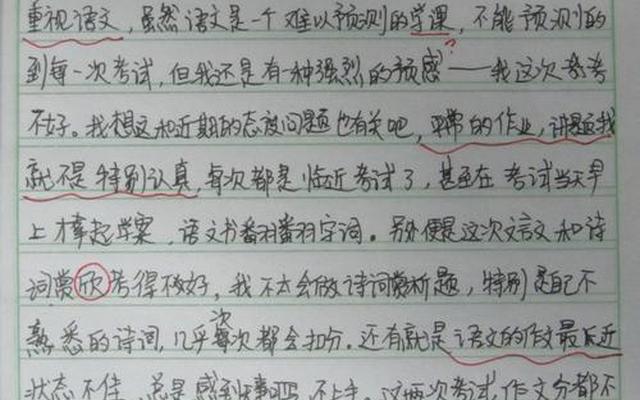 重视语文，虽然语文是一个难以预测的学课，不能预测的
?
到每一次考试，但我还是有一种强烈的预感——我这次考
不好。我想这和近期的态度问题也有关吧，平常的作业，讲题我
就不是特别认真，每次都是临近考试了，甚至在考试当天早
上才拿起学案，语文书翻翻字词。另外便是这次文言文和诗
词赏欣考得不好，我不太会做诗词赏析题，特别是自己不
次
熟悉的诗词，几乎每次都会扣分。还有就是语文的作文最近
状态不佳，总是感到 不上手。这两次考试，作文分都不